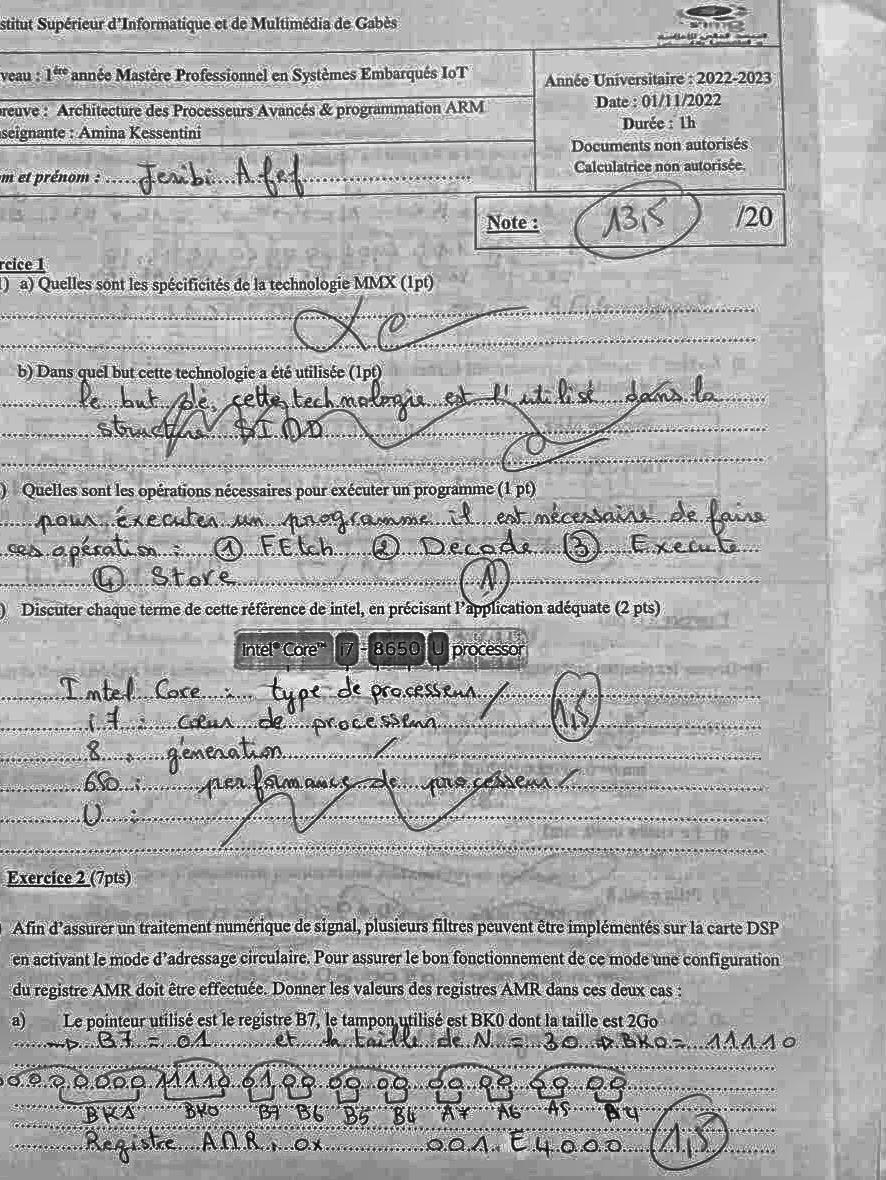 stitut Supérieur d'Informatique et de Multimédia de Gabès
veau : 1ère année Mastère Professionnel en Systèmes Embarqués IoT
reuve : Architecture des Processeurs Avancés & programmation ARM
seignante : Amina Kessentini
Année Universitaire : 2022-2023
Date : 01/11/2022
Durée : 1h
Documents non autorisés
Calculatrice non autorisée.
m et prénom : Jeribi Afef
Note : 13,5 /20
rcice 1
) a) Quelles sont les spécificités de la technologie MMX (1pt)
b) Dans quel but cette technologie a été utilisée (1pt)
le but de cette technologie est l'utilisé dans la
structure SIMD
0
) Quelles sont les opérations nécessaires pour exécuter un programme (1 pt)
pour éxecuter un programme il est nécessaire de faire
ces opération : ① FEtch ② Decode ③ Execute
④ Store 1
) Discuter chaque terme de cette référence de intel, en précisant l'application adéquate (2 pts)
intel® Core™ i7 - 8650 U processor
Intel Core : type de processeur
1,5
i7 : cœur de processeur
8 : génération
650 : performance de processeur
U :
Exercice 2 (7pts)
Afin d'assurer un traitement numérique de signal, plusieurs filtres peuvent être implémentés sur la carte DSP
en activant le mode d'adressage circulaire. Pour assurer le bon fonctionnement de ce mode une configuration
du registre AMR doit être effectuée. Donner les valeurs des registres AMR dans ces deux cas :
a) Le pointeur utilisé est le registre B7, le tampon utilisé est BK0 dont la taille est 2Go
→ B7 = 01 et la taille de N = 30 → BK0 = 11110
00000000 11110 01 00 00 00 00 00 00 00
BK1 BK0 B7 B6 B5 B4 A7 A6 A5 A4
Registre AMR : 0x 001E4000 1,5